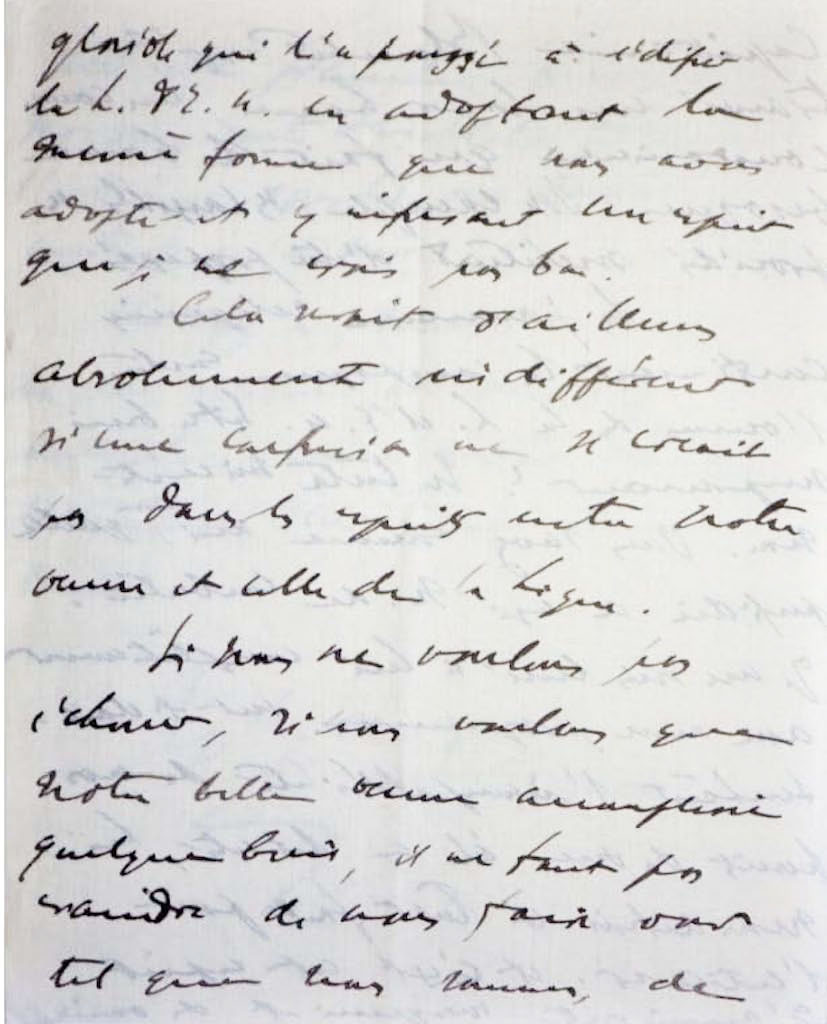 gloriole qui l'a poussé à édifier
la L. d'E. N. en adoptant la
même forme que nous avons
adoptée et y infusant un esprit
que je ne crois pas bon.
Cela serait d'ailleurs
absolument indifférent
si une confusion ne se créait
pas dans les esprits entre notre
œuvre et celle de la Ligue.
Si nous ne voulons pas
échouer, si nous voulons que
notre belle œuvre accomplisse
quelque bien, il ne faut pas
craindre de nous faire voir
tel que nous sommes, de